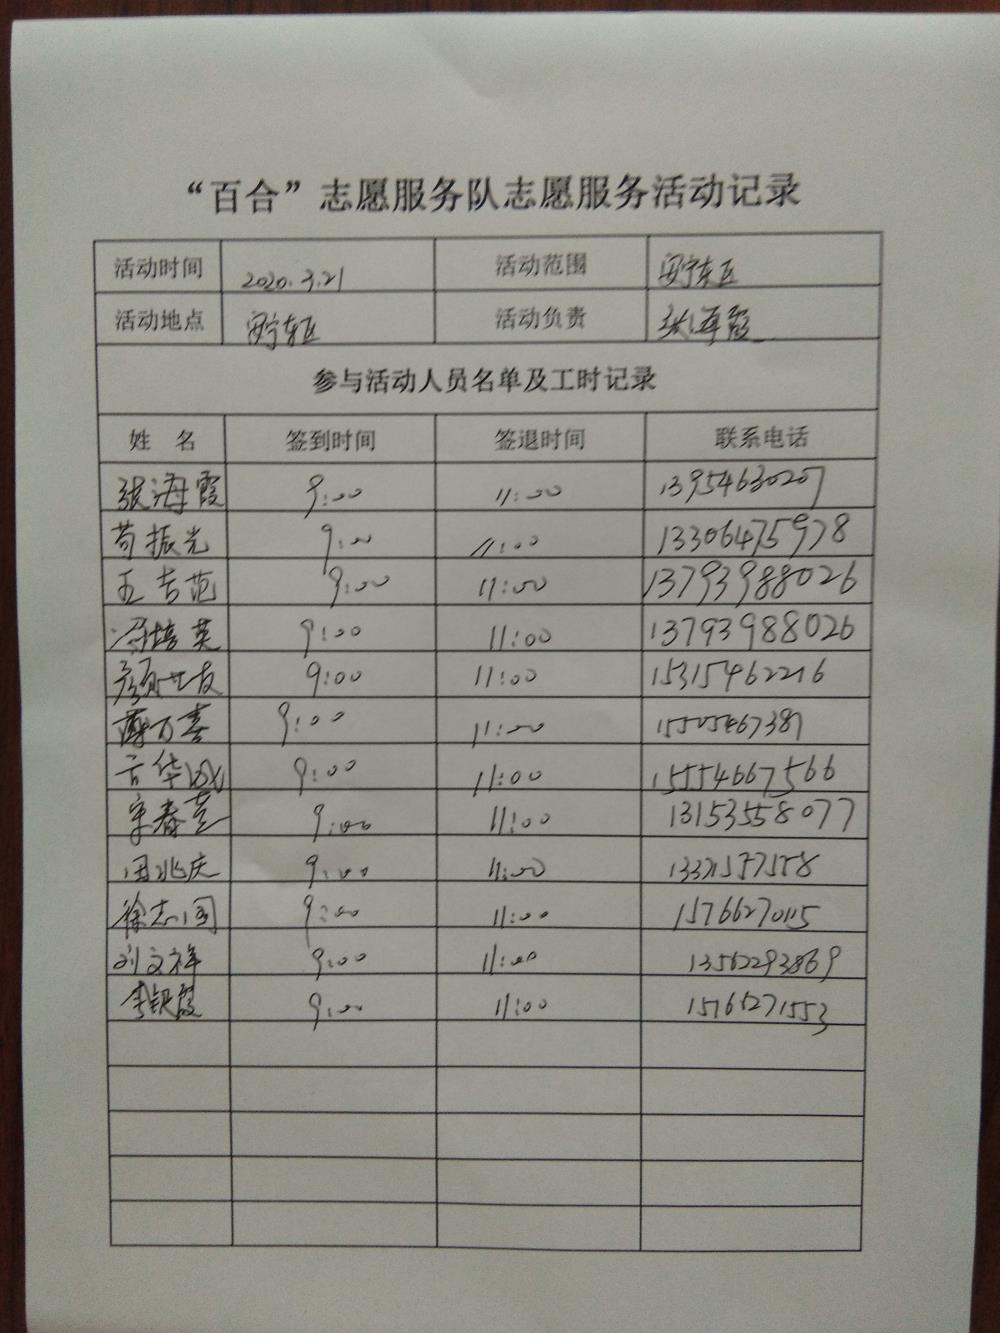 “百合”志愿服务队志愿服务活动记录
活动时间 2020.3.21 活动范围 东区
活动地点 东区 活动负责 张海霞
参与活动人员名单及工时记录
姓 名 签到时间 签退时间 联系电话
张海霞 9:00 11:00 13954630207
苟振光 9:00 11:00 13306475978
王吉范 9:00 11:00 13793988026
冯培英 9:00 11:00 13793988026
颜世友 9:00 11:00 15315462216
薄万喜 9:00 11:00 15505467387
9:00 11:00 15554667566
宋春 9:00 11:00 13153558077
田兆庆 9:00 11:00
徐志国 9:00 11:00 15766270115
刘文祥 9:00 11:00 13562293869
李银霞 9:00 11:00 15765271553